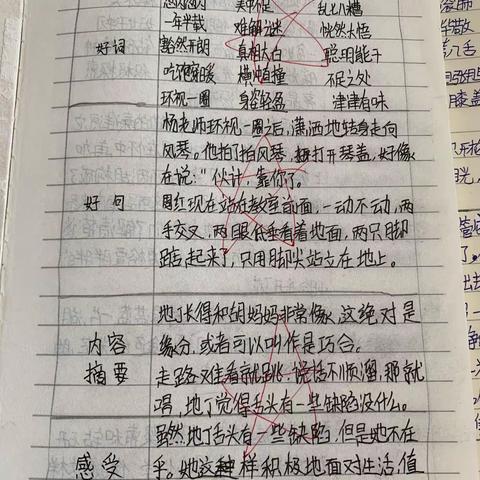 美中不足 乱七八糟
一年半载 难解之迷 恍然大悟
好词 豁然开朗 真相大白 聪明能干
吃饱穿暖 横冲直撞 不足之处
环视一圈 身姿轻盈 津津有味
杨老师环视一圈之后,潇洒地转身走向
风琴。他拍了拍风琴,打开琴盖,好像
在说:“伙计,靠你了。
好句 周红现在站在教室前面,一动不动,两
手交叉,两眼低垂看着地面,两只脚
踮起来了,只用脚尖站立在地上。
地丁长得和胡妈妈非常像,这绝对是
内容 缘分,或者可以叫作是巧合。
摘要 走路艰难看就跳,说话不顺溜,那就
唱,地丁觉得舌头有一些缺陷没什么。
虽然地丁舌头有一些缺陷,但是她不在
感受 乎。她这种样积极地面对生活,值